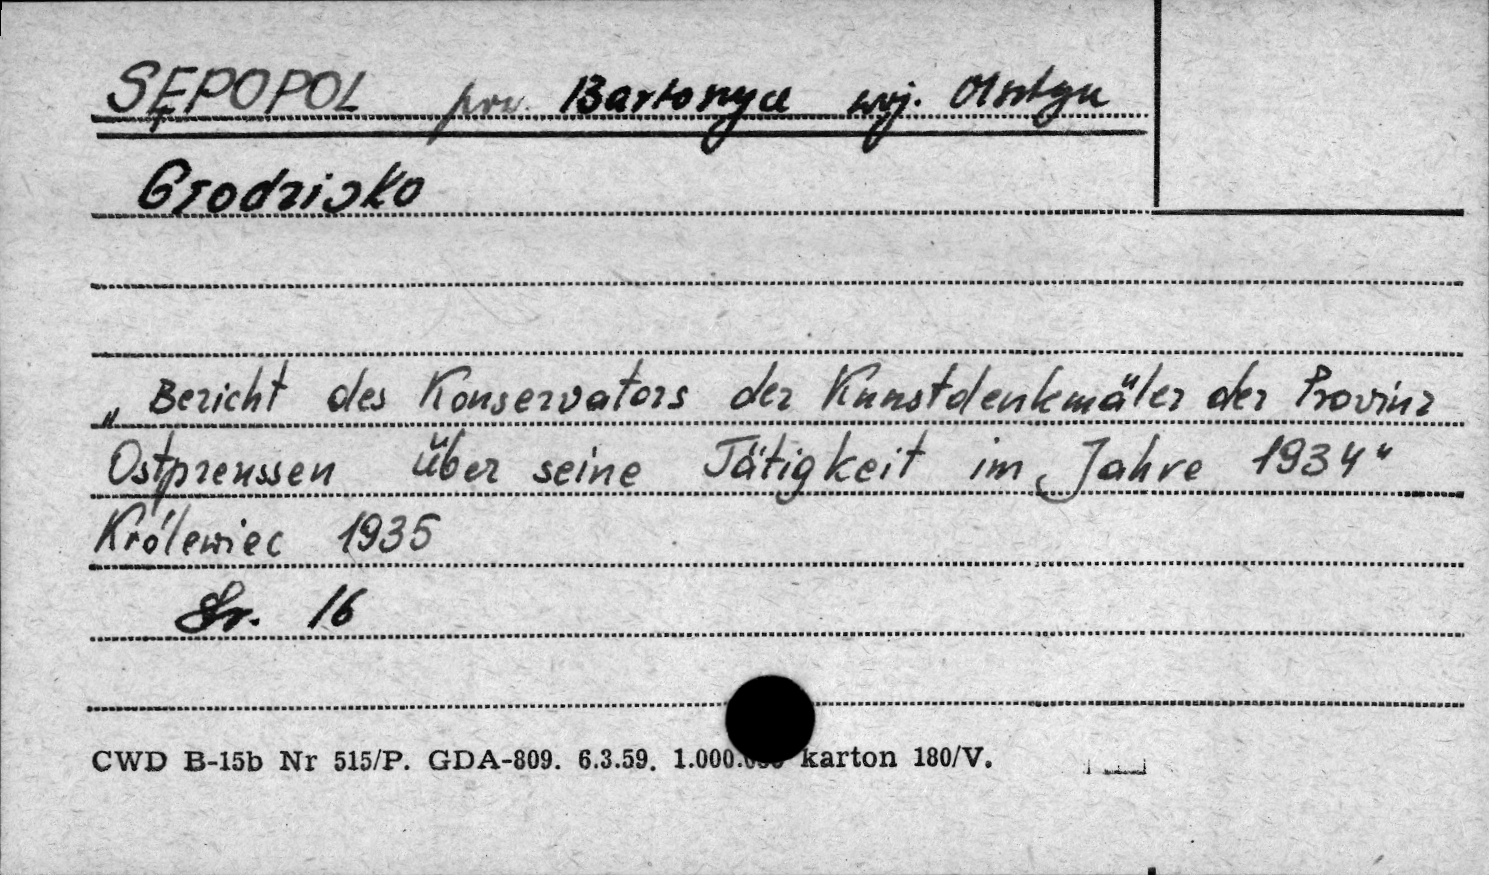 SĘPOPOL pow. Bartoszyce woj. Olsztyn
Grodzisko
„Bericht des Konservators der Kunstdenkmäler der Provinz
Ostpreussen über seine Tätigkeit im Jahre 1934"
Królewiec 1935
Str. 16
CWD B-15b Nr 515/P. GDA-809. 6.3.59. karton 180/V.